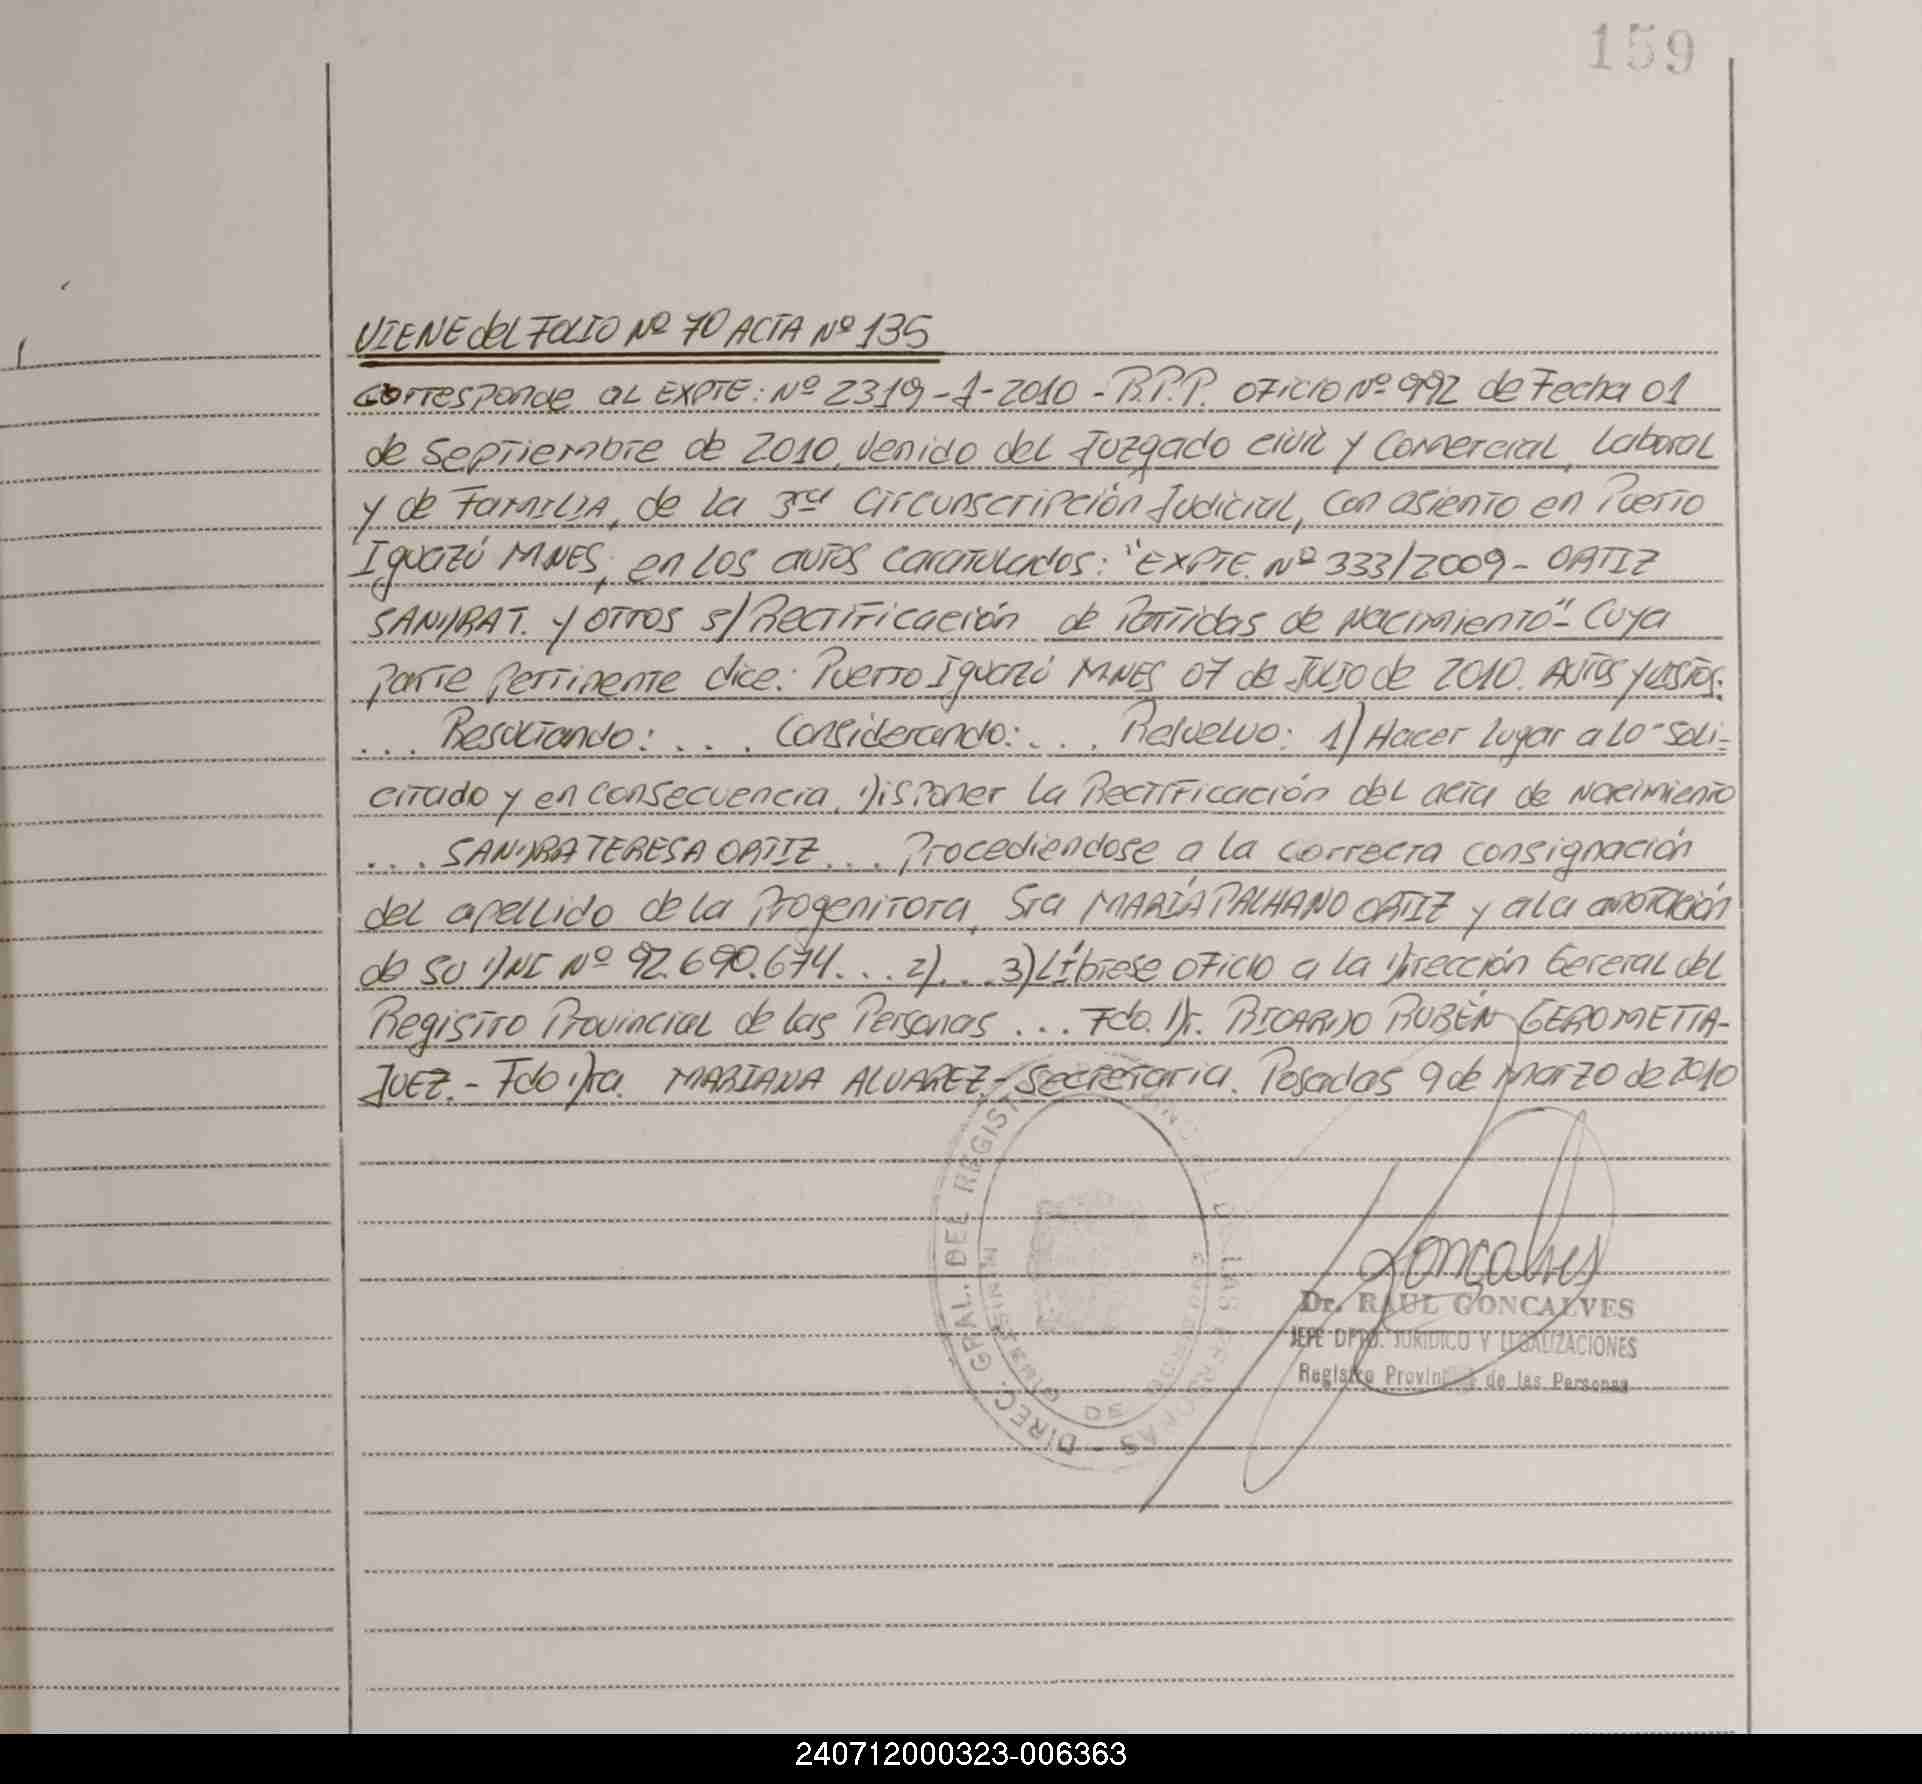 159
VIENE del FOLIO Nº 70 ACTA Nº 135
Corresponde al EXPTE: Nº 2319-1-2010 - R.P.P. oficio Nº 992 de Fecha 01
de Septiembre de 2010, venido del Juzgado civil y Comercial, Laboral
y de FAMILIA, de la 3ra circunscripción Judicial, con asiento en Puerto
Iguazú MNES, en los autos caratulados: "EXPTE. Nº 333/2009 - ORTIZ
SANDRA T. y OTROS s/ Rectificación de Partidas de Nacimiento" - Cuya
parte pertinente dice: Puerto Iguazú MNES 07 de Julio de 2010. AUTOS y VISTOS:
.... Resultando: .... Considerando: .... Resuelvo: 1) Hacer lugar a lo soli-
citado y en consecuencia, Disponer la Rectificación del acta de nacimiento
... SANDRA TERESA ORTIZ ... Procediendose a la correcta consignación
del apellido de la Progenitora, Sra MARÍA PALHANO ORTIZ y a la anotación
de su DNI Nº 92.690.674... 2)... 3) Líbrese oficio a la Dirección General del
Registro Provincial de las Personas ... Fdo. Dr. RICARDO RUBÉN GEROMETTA-
JUEZ.- Fdo Dra. MARIANA ALVAREZ - Secretaria. Posadas 9 de Marzo de 2010
DIREC. GRAL. DEL REGISTRO PROVINCIAL DE LAS PERSONAS
MINISTERIO DE GOBIERNO
Goncalves
Dr. RAUL GONCALVES
JEFE DPTO. JURIDICO Y LEGALIZACIONES
Registro Provincial de las Personas
240712000323-006363